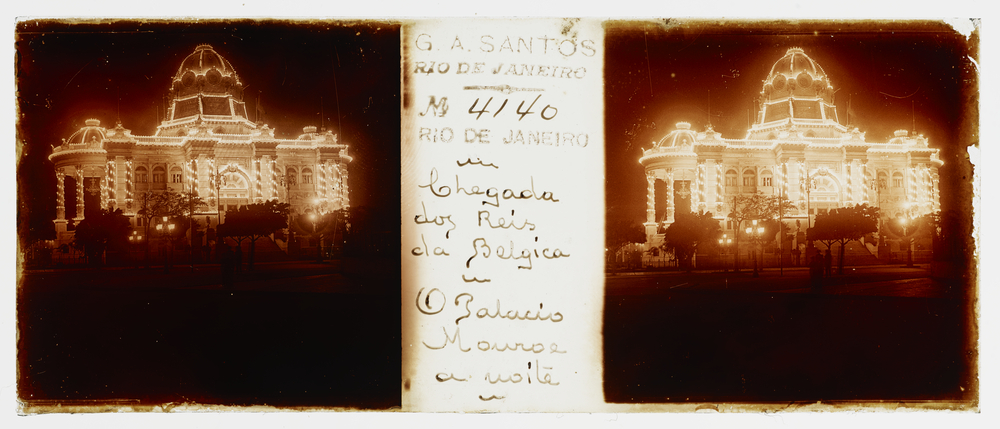 G. A. SANTOS
RIO DE JANEIRO
№ 4140
RIO DE JANEIRO
Chegada
dos Reis
da Belgica
O Palacio
Monroe
a noite